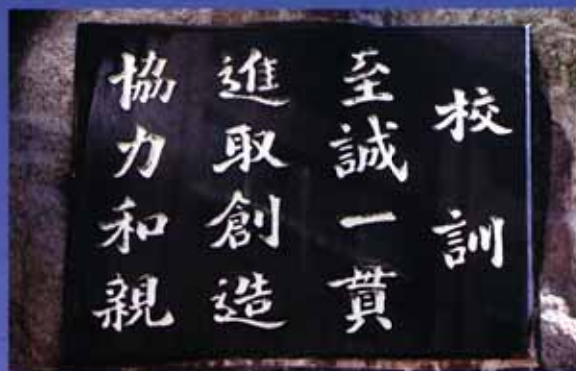 校訓
至誠一貫
進取創造
協力和親